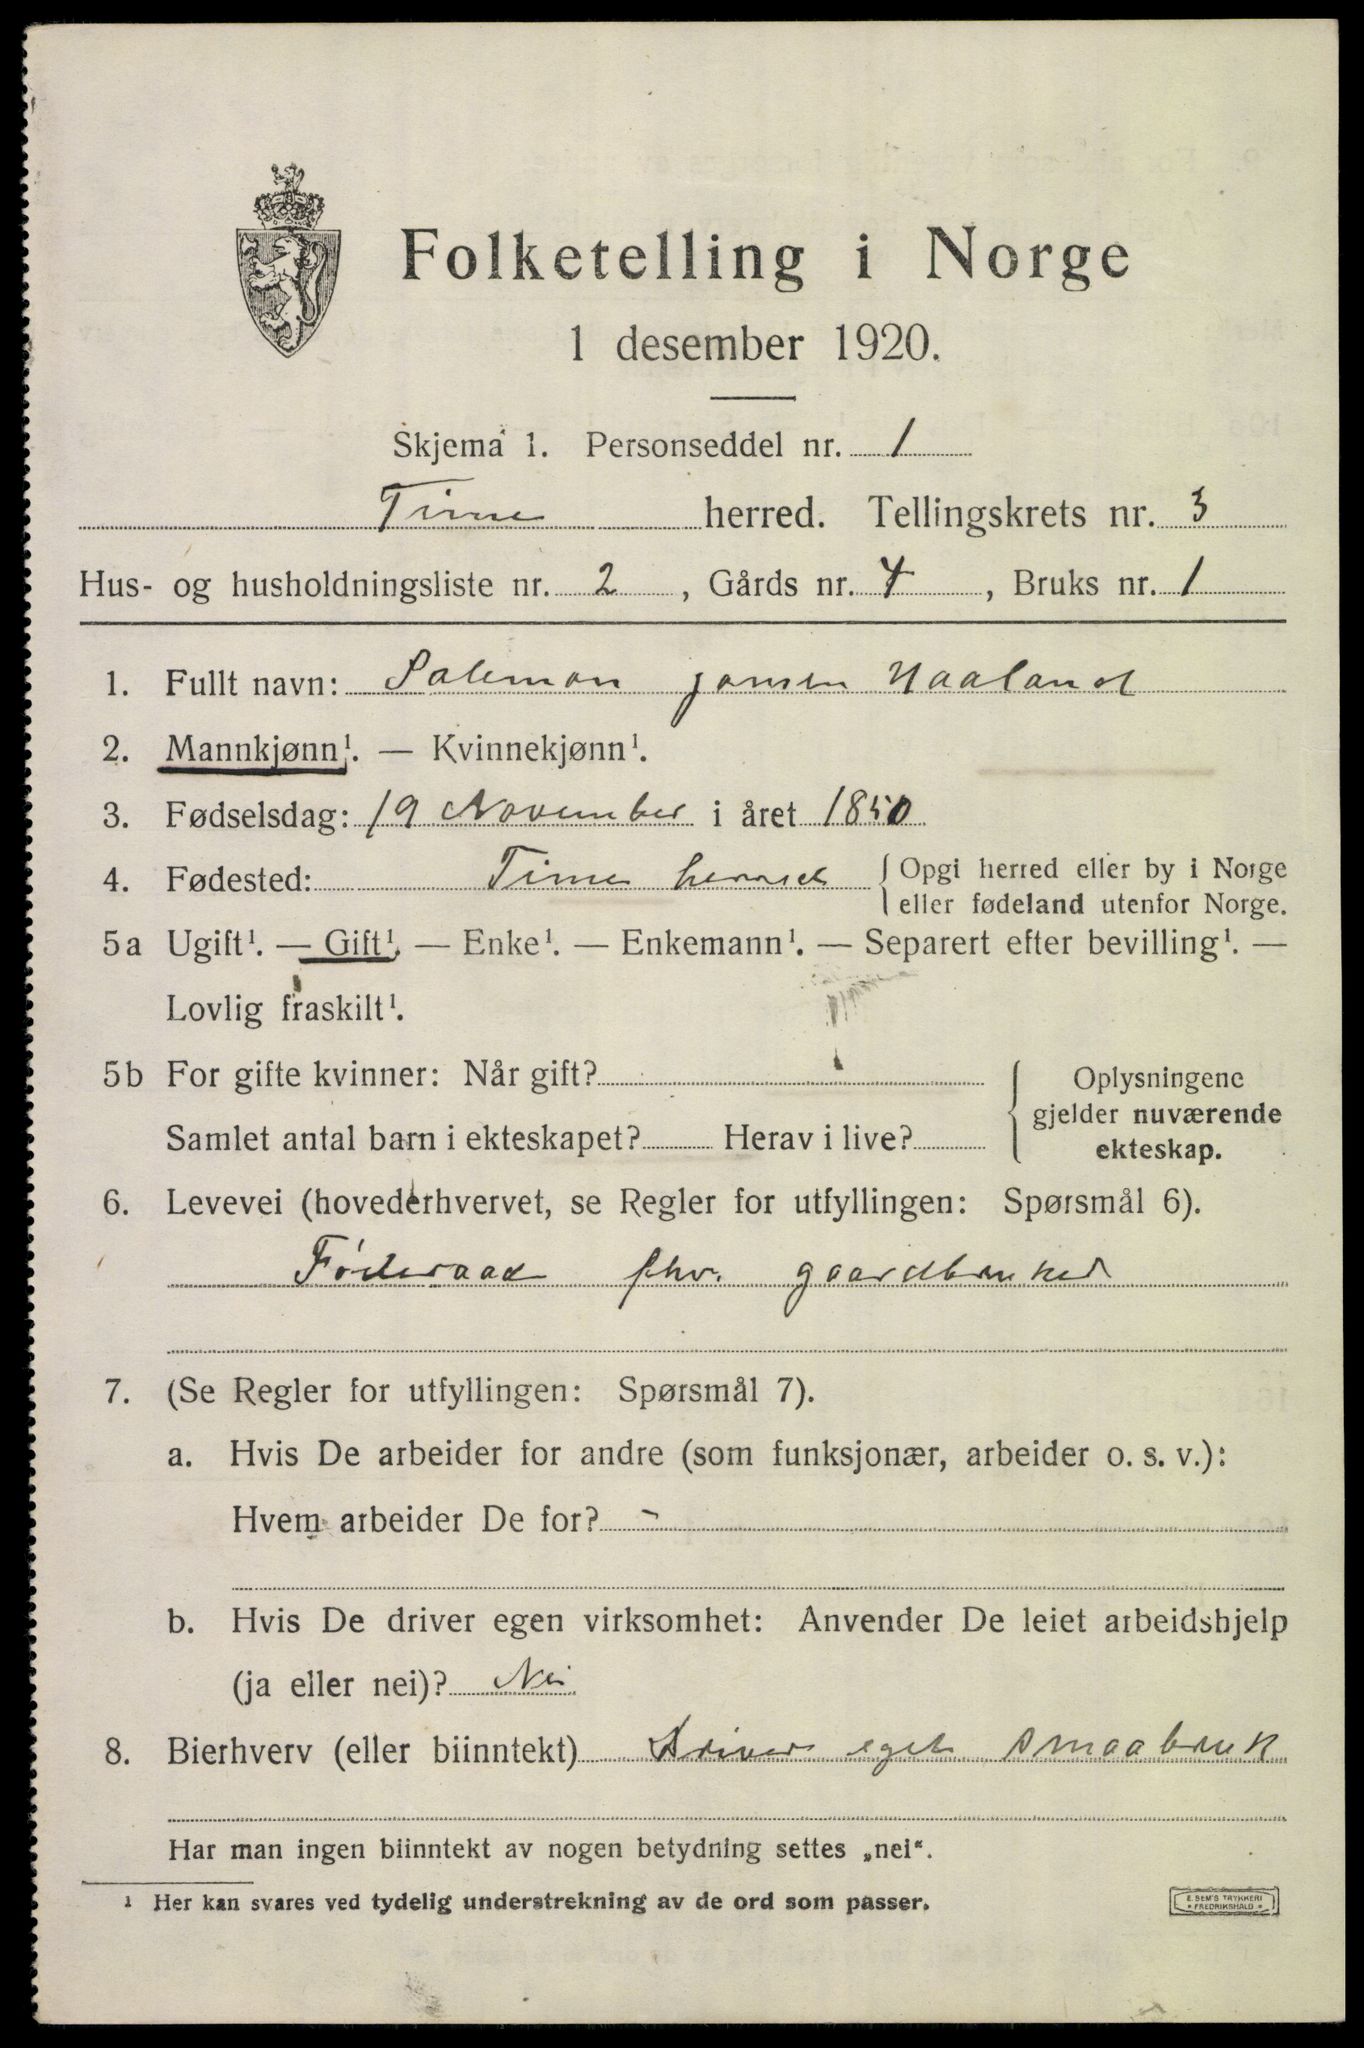 Folketelling i Norge
1 desember 1920.
Skjema 1. Personseddel nr. 1
Time herred. Tellingskrets nr. 3
Hus- og husholdningsliste nr. 2, Gårds nr. 4, Bruks nr. 1
1. Fullt navn: Salemon Jonsen Haaland
2. Mannkjønn¹. — Kvinnekjønn¹.
3. Fødselsdag: 19 November i året 1850
4. Fødested: Time herred { Opgi herred eller by i Norge
eller fødeland utenfor Norge.
5a Ugift¹. — Gift¹. — Enke¹. — Enkemann¹. — Separert efter bevilling¹. —
Lovlig fraskilt¹.
5b For gifte kvinner: Når gift?
Samlet antal barn i ekteskapet? Herav i live?
{ Oplysningene
gjelder nuværende
ekteskap.
6. Levevei (hovederhvervet, se Regler for utfyllingen: Spørsmål 6).
Føderaad fhv. gaardbruker
7. (Se Regler for utfyllingen: Spørsmål 7).
a. Hvis De arbeider for andre (som funksjonær, arbeider o. s. v.):
Hvem arbeider De for? -
b. Hvis De driver egen virksomhet: Anvender De leiet arbeidshjelp
(ja eller nei)? Nei
8. Bierhverv (eller biinntekt) Driver eget smaabruk
Har man ingen biinntekt av nogen betydning settes „nei“.
¹ Her kan svares ved tydelig understrekning av de ord som passer.
E. SEM'S TRYKKERI
* FREDRIKSHALD *